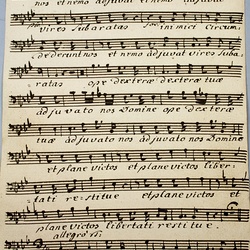 nos et nemo adjuvat et nemo adjuvat
vires Subaratas inimici Circum
dederunt nos et nemo adjuvat vires Suba
ratas ope dexteræ dexteræ tuæ
adjuvato nos Domine ope dexteræ
tuæ adjuvato nos adjuvato nos Domine
et plane victos et plane victos liber
tati restitue et plane victos et
plane victos libertati restitue.
allegro